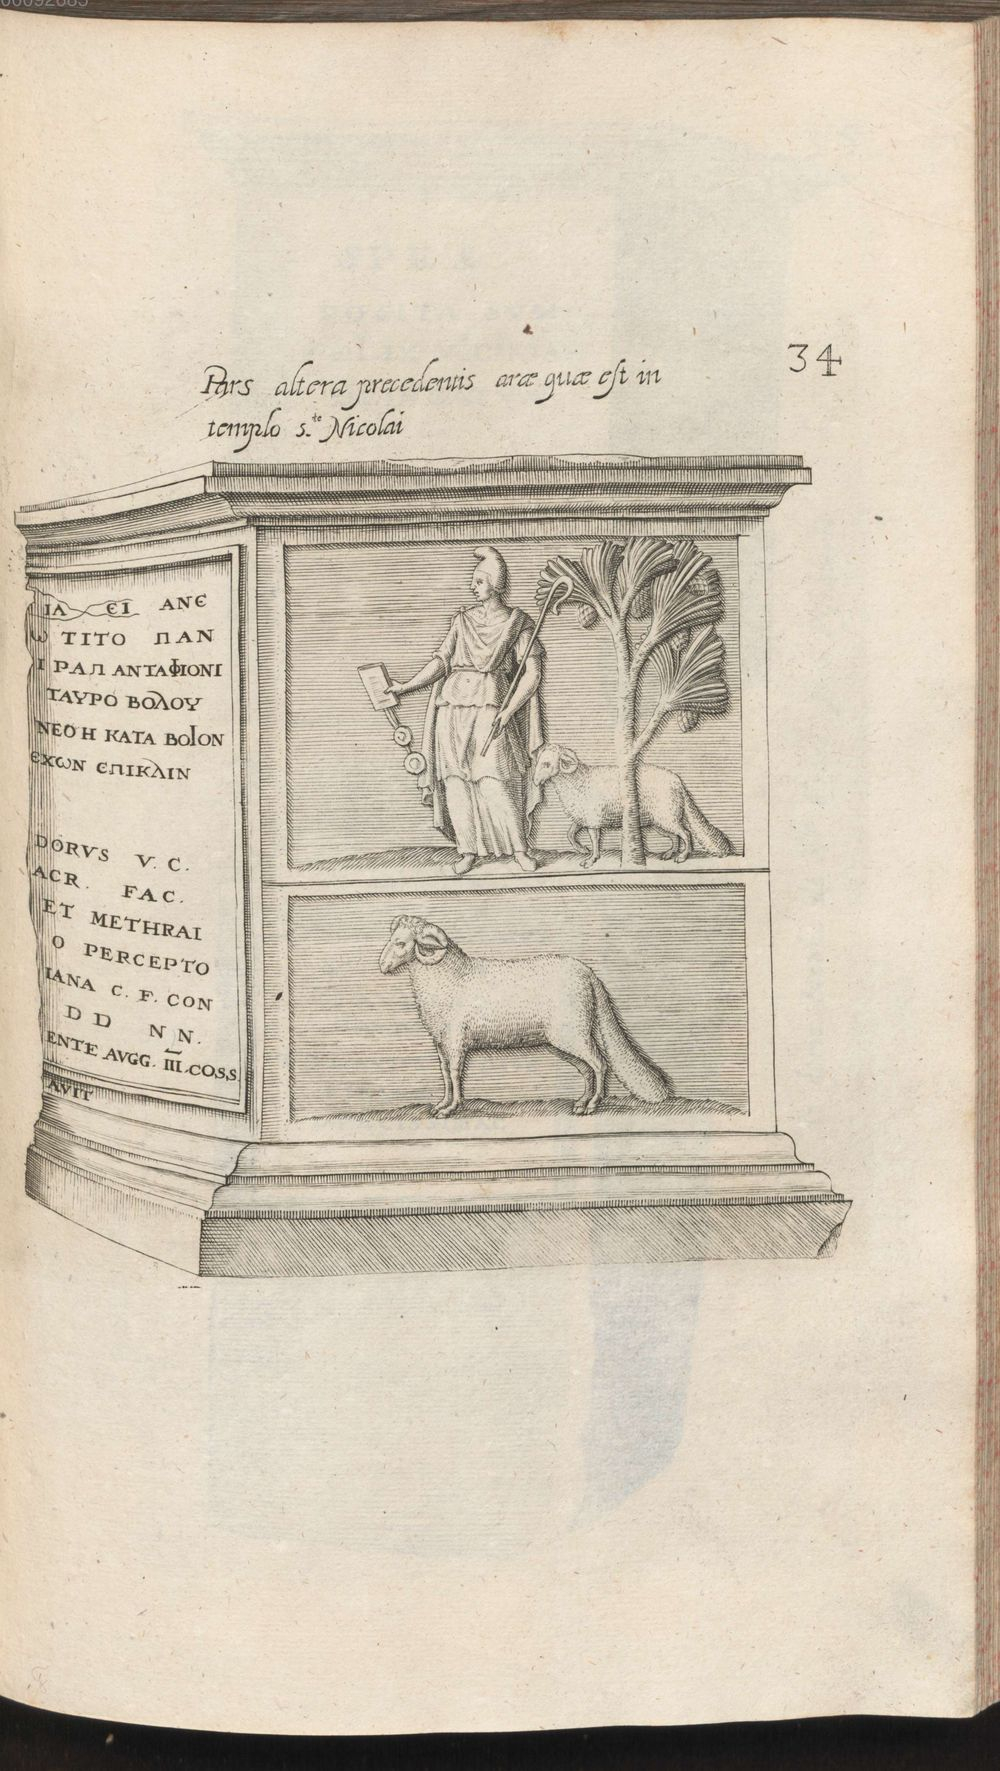 34
Pars altera precedentis aræ quæ est in
templo s.te Nicolai
ΙΑ ЄΙ ΑΝЄ
Ѡ ΤΙΤΟ ΠΑΝ
Ι ΡΑΠ ΑΝΤΑΦΙΟΝΙ
ΤΑΥΡΟ ΒΟΛΟΥ
ΝΕΟΗ ΚΑΤΑ ΒΟΙΟΝ
ЄΧѠΝ ЄΠΙΚΛΙΝ
DORVS V. C.
ACR. FAC.
ET METHRAI
O PERCEPTO
IANA C. F. CON
D D N N.
ENTE AVGG. III. COS,S
AVIT